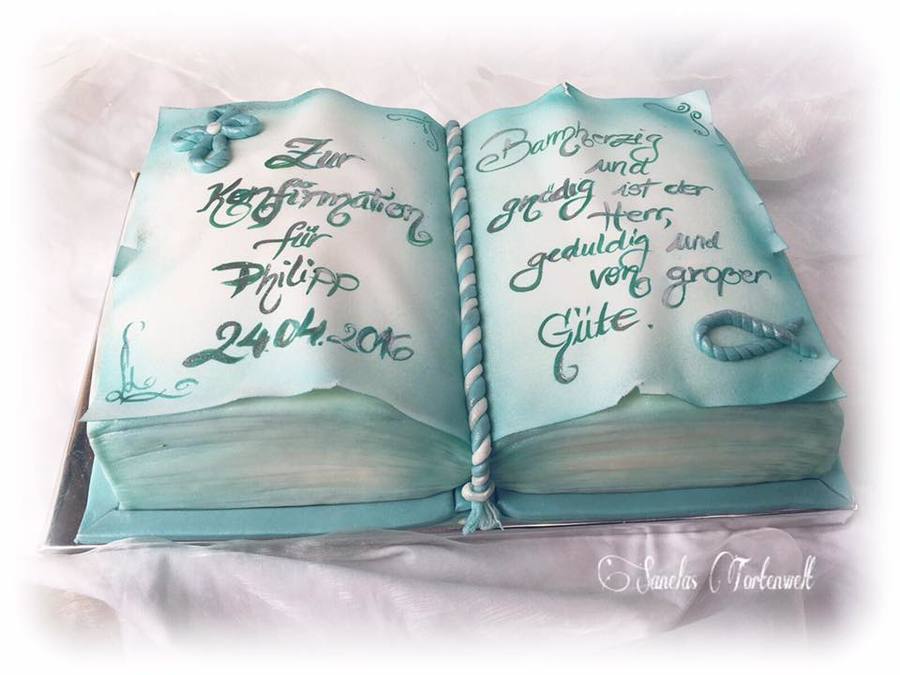 Zur
Konfirmation
für
Philipp
24.04.2016
Barmherzig
und
gnädig ist der
Herr,
geduldig und
von großer
Güte.
Sanelas Tortenwelt